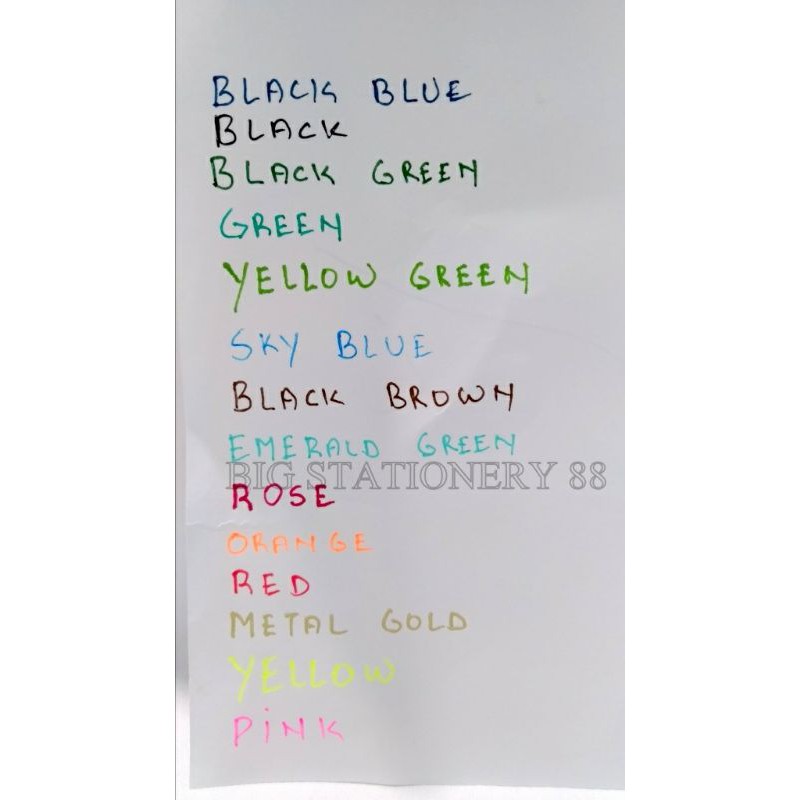 BLACK BLUE
BLACK
BLACK GREEN
GREEN
YELLOW GREEN
SKY BLUE
BLACK BROWN
EMERALD GREEN
BIG STATIONERY 88
ROSE
ORANGE
RED
METAL GOLD
YELLOW
PiNK